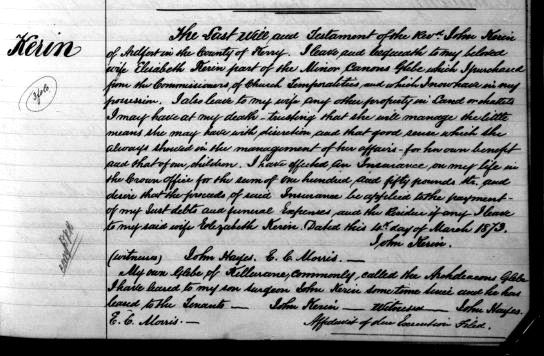 Kerin
3 fols
The Last Will and Testament of the Revd. John Kerin
of Ardfert in the County of Kerry. I leave and bequeath to my beloved
wife Elizabeth Kerin part of the Minor Canons Glebe which I purchased
from the Commissioners of Church Temporalities and which I now have in my
possession. I also leave to my wife any other property in Land or chattels
I may have at my death - trusting that she will manage the little
means she may have with discretion and that good sense which she
always shewed in the management of her affairs - for her own benefit
and that of our children. I have effected an Insurance on my life in
the Crown office for the sum of one hundred and fifty pounds stg. and
desire that the proceeds of said Insurance be applied to the payment -
of my Just debts and funeral Expenses, and the Residue if any I leave
to my said wife Elizabeth Kerin. Dated this 4th day of March 1873.
John Kerin.
(witness) John Hayes. E. C. Morris. -
My own Glebe of Killurane, commonly, called the Archdeacons Glebe
I have leased to my son surgeon John Kerin some time since and he has
leased to the Tenants - John Kerin - Witnesses - John Hayes.
E. C. Morris. - Affidavit of due Execution Filed.